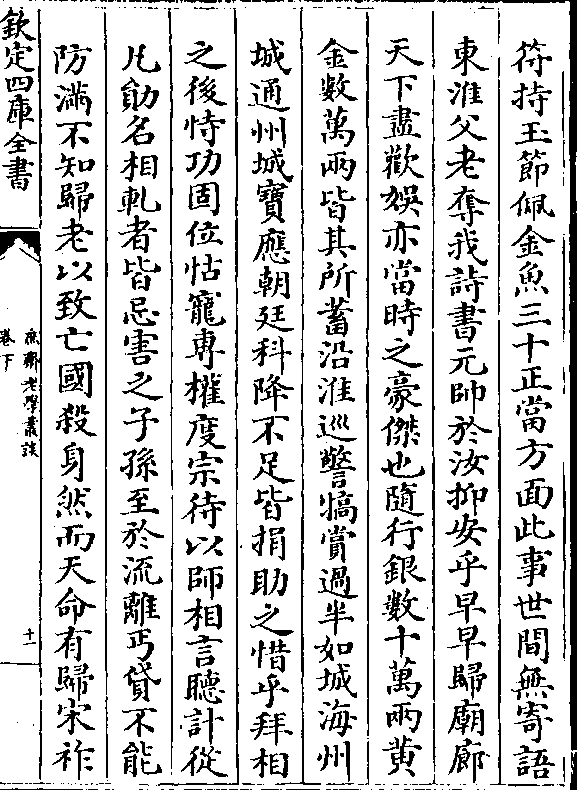 符持玉節佩金魚三十正當方面此事世間無寄語
東淮父老奪我詩書元帥於汝抑安乎早早歸廟廊
天下盡歡娛亦當時之豪傑也隨行銀數十萬兩黃
金數萬兩皆其所蓄沿淮巡警犒賞過半如城海州
城通州城寶應朝廷科降不足皆捐助之惜乎拜相
之後恃功固位怙寵專權度宗待以師相言聽計從
凡勛名相軋者皆忌害之子孫至於流離丐貸不能
防滿不知歸老以致亡國殺身然而天命有歸宋祚
欽定四庫全書
庶齋老學叢談
卷下
十一